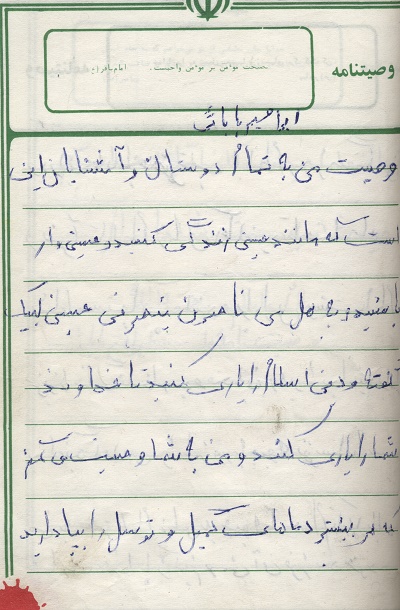 وصیتنامه
نصیحت مؤمن بر مؤمن واجبست. امام باقر (ع)
ابراهیم بابائی
وصیت من به تمام دوستان و آشنایان این
است که مانند حسینی زندگی کنید و حسینی وار
باشید و به هل من ناصرن ینصرنی حسین لبیک
گفته و دین اسلام را یاری کنید تا خداوند
شما را یاری کند و من به شما وصیت می کنم
که هر بیشتر دعاهای کمیل و توسل را بپا دارید